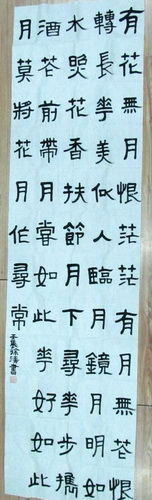 有花無月恨茫茫有月無花恨
轉長華美似人臨月鏡月明如
水照花香扶節月下尋華步攜
酒花前帶月嘗如此華好如此
月莫將花月作尋常
書